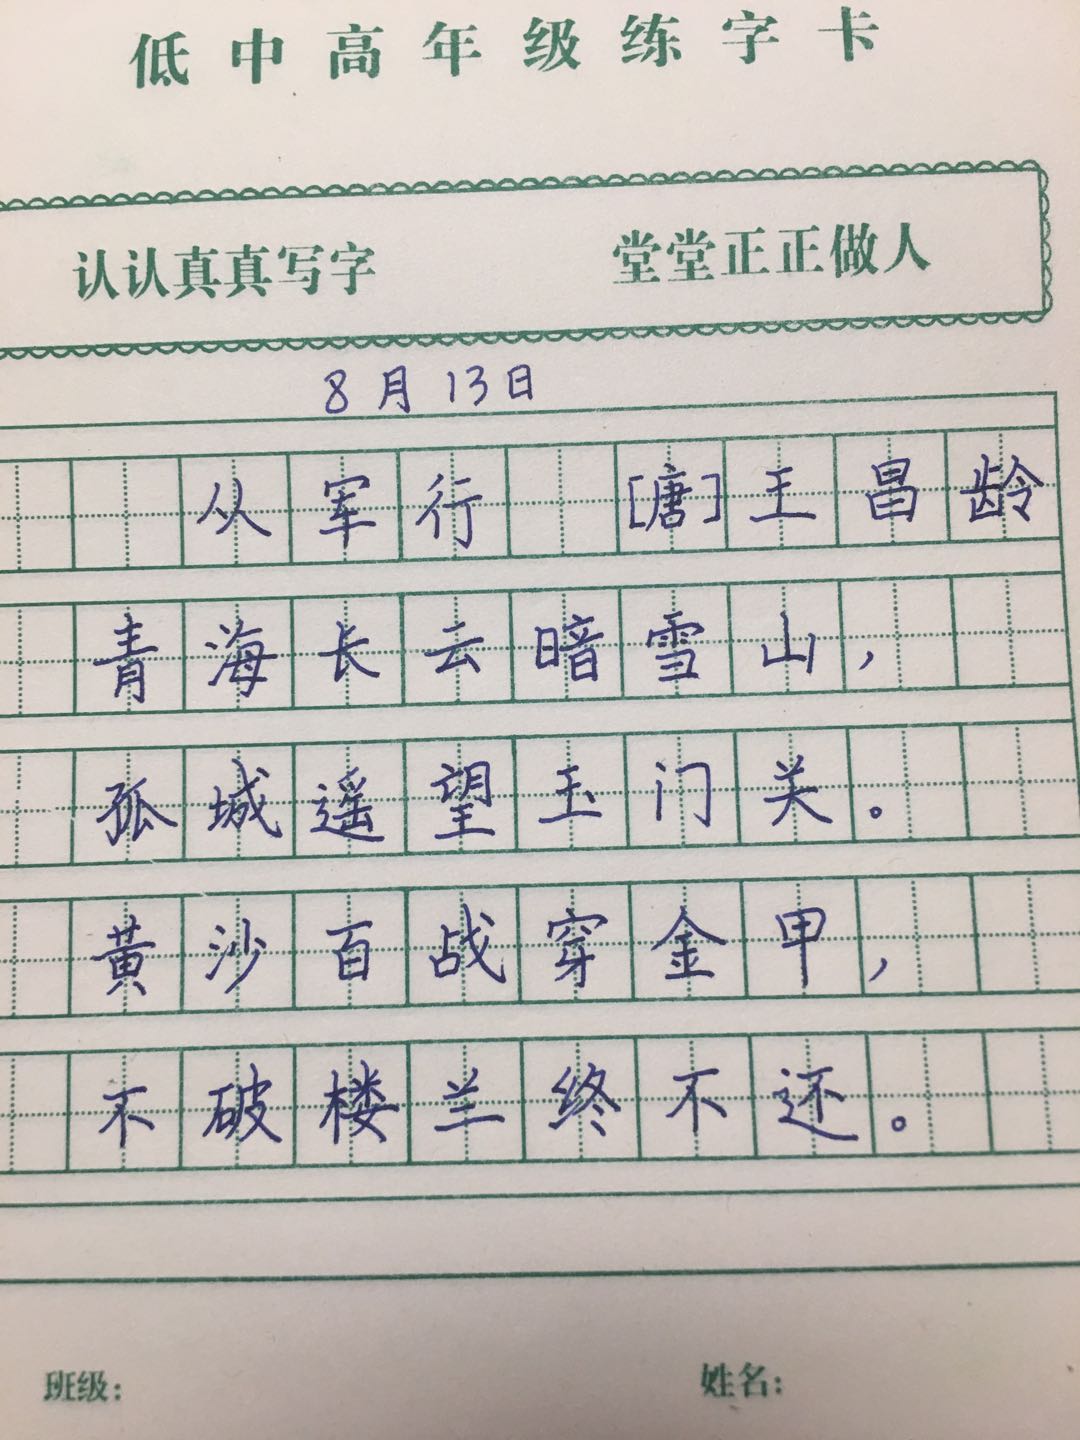 低中高年级练字卡
认认真真写字 堂堂正正做人
8月13日
从军行 [唐]王昌龄
青海长云暗雪山,
孤城遥望玉门关。
黄沙百战穿金甲,
不破楼兰终不还。
班级: 姓名: